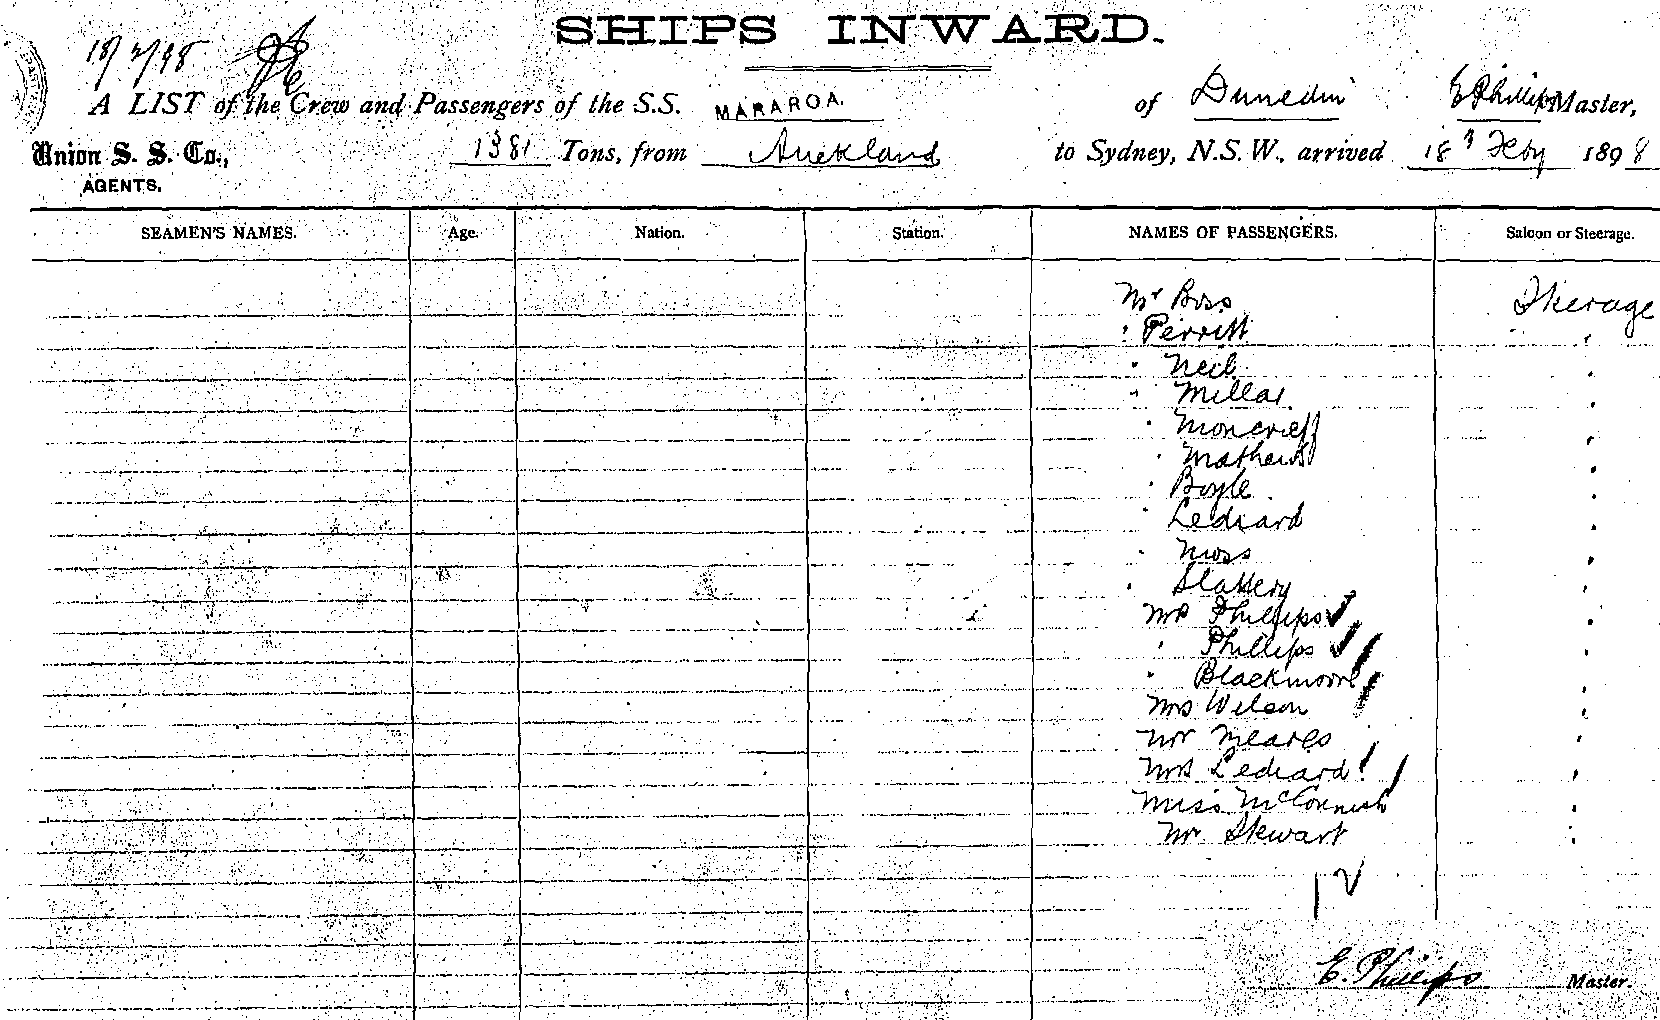 SHIPS INWARD.
18/2/98
A LIST of the Crew and Passengers of the S.S. MARAROA. of Dunedin E Phillips Master,
Union S. S. Co., 1381 Tons, from Auckland to Sydney, N.S.W., arrived 18 Feby 1898
AGENTS.
SEAMEN'S NAMES. Age. Nation. Station. NAMES OF PASSENGERS. Saloon or Steerage.
Mr Biss Steerage
" Perritt "
" Neil "
" Millar "
" Moncrieff "
" Mathews "
" Boyle "
" Lediard "
" Moss "
" Slattery "
Mrs Phillips "
" Phillips "
" Blackmoore "
Mrs Wilson "
Mr Meares "
Mrs Lediard "
Miss McCormish "
Mr Stewart "
E. Phillips Master.